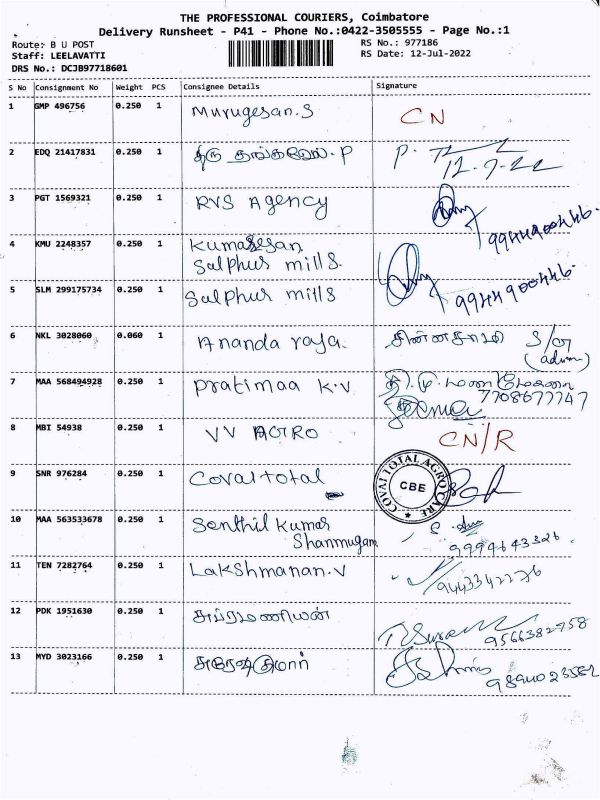 THE PROFESSIONAL COURIERS, Coimbatore
Delivery Runsheet - P41 - Phone No.:0422-3505555 - Page No.:1
Route: B U POST
Staff: LEELAVATTI
DRS No.: DCJB97718601
RS No.: 977186
RS Date: 12-Jul-2022
S No Consignment No Weight PCS Consignee Details Signature
1 GMP 496756 0.250 1 Murugesan.S CN
2 EDQ 21417831 0.250 1 திரு தங்கவேல்.P P.
12-7-22
3 PGT 1569321 0.250 1 RVS Agency
9944900446.
4 KMU 2248357 0.250 1 Kumaresan
Sulphur mills.
5 SLM 299175734 0.250 1 Sulphur mills 9944900446.
6 NKL 3028060 0.060 1 Ananda raja. சின்னசாமி S/O
(admin)
7 MAA 568494928 0.250 1 Pratimaa K.V
7708677747
8 MBI 54938 0.250 1 VV AGRO CN/R
9 SNR 976284 0.250 1 Covai total
COVAI TOTAL AGRO CARE
CBE
10 MAA 563533678 0.250 1 Senthil Kumar
Shanmugam
9994643326.
11 TEN 7282764 0.250 1 Lakshmanan.V 9443342276
12 PDK 1951630 0.250 1 சுப்ரமணியன்
9566382758
13 MYD 3023166 0.250 1 சுரேஷ்குமார்